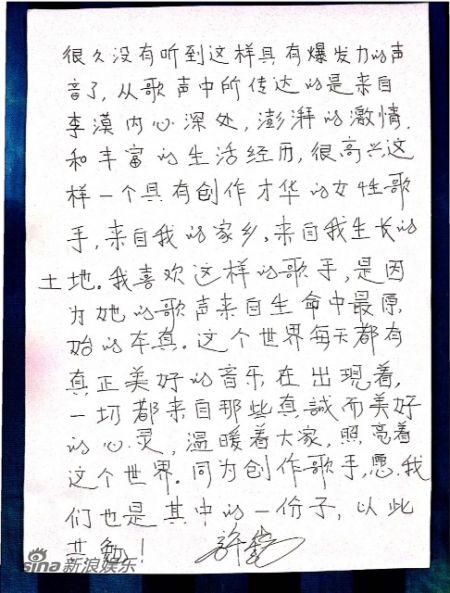 很久没有听到这样具有爆发力的声
音了，从歌声中所传达的是来自
李漠内心深处，澎湃的激情，
和丰富的生活经历，很高兴这
样一个具有创作才华的女性歌
手，来自我的家乡，来自我生长的
土地。我喜欢这样的歌手，是因
为她的歌声来自生命中最原
始的本真。这个世界每天都有
真正美好的音乐在出现着，
一切都来自那些真誠而美好
的心灵，温暖着大家，照亮着
这个世界。同为创作歌手，愿我
们也是其中的一份子，以此
共勉！
sina新浪娱乐